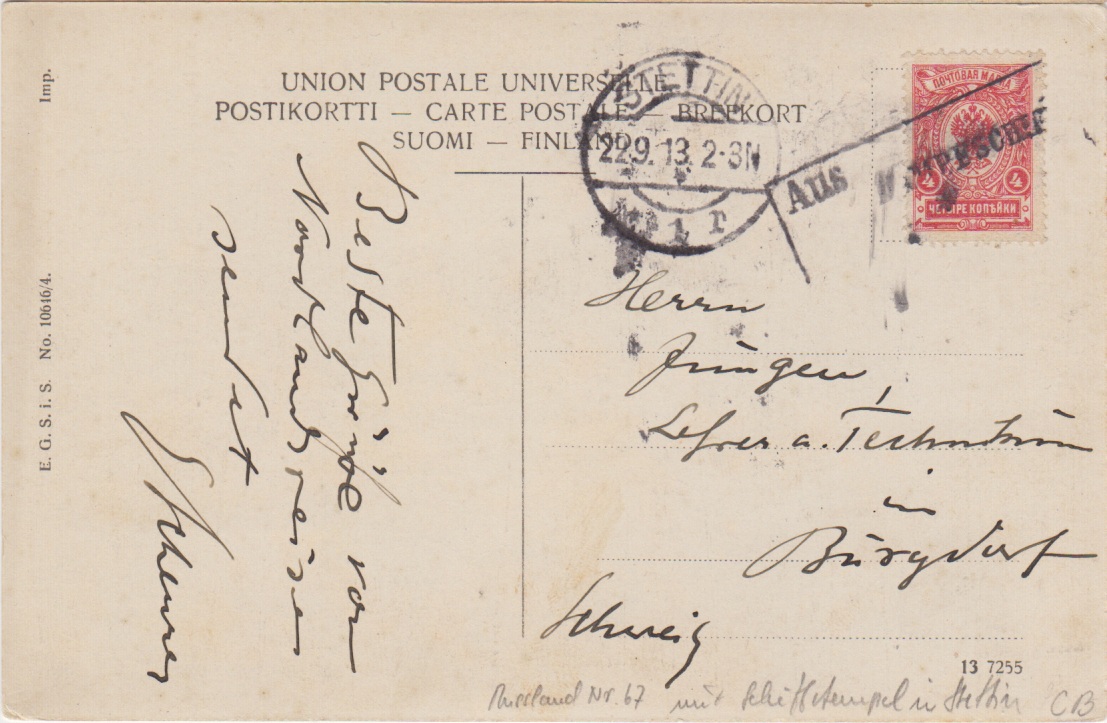 UNION POSTALE UNIVERSELLE
POSTIKORTTI — CARTE POSTALE — BREFKORT
SUOMI — FINLAND
Imp.
E. G. S. i. S. No. 10646/4.
STETTIN
22.9.13. 2-3N
1 r
Aus DAMPFSCHIFF
ПОЧТОВАЯ МАРКА
4 4
ЧЕТЫРЕ КОПѢЙКИ
Beste Grüße von
Nordlandreisen
sendet
Scheurer
Herrn
Jüngen
Lehrer a. Technikum
in
Burgdorf
Schweiz
13 7255
Russland Nr. 67 mit Schiffstempel in Stettin CB